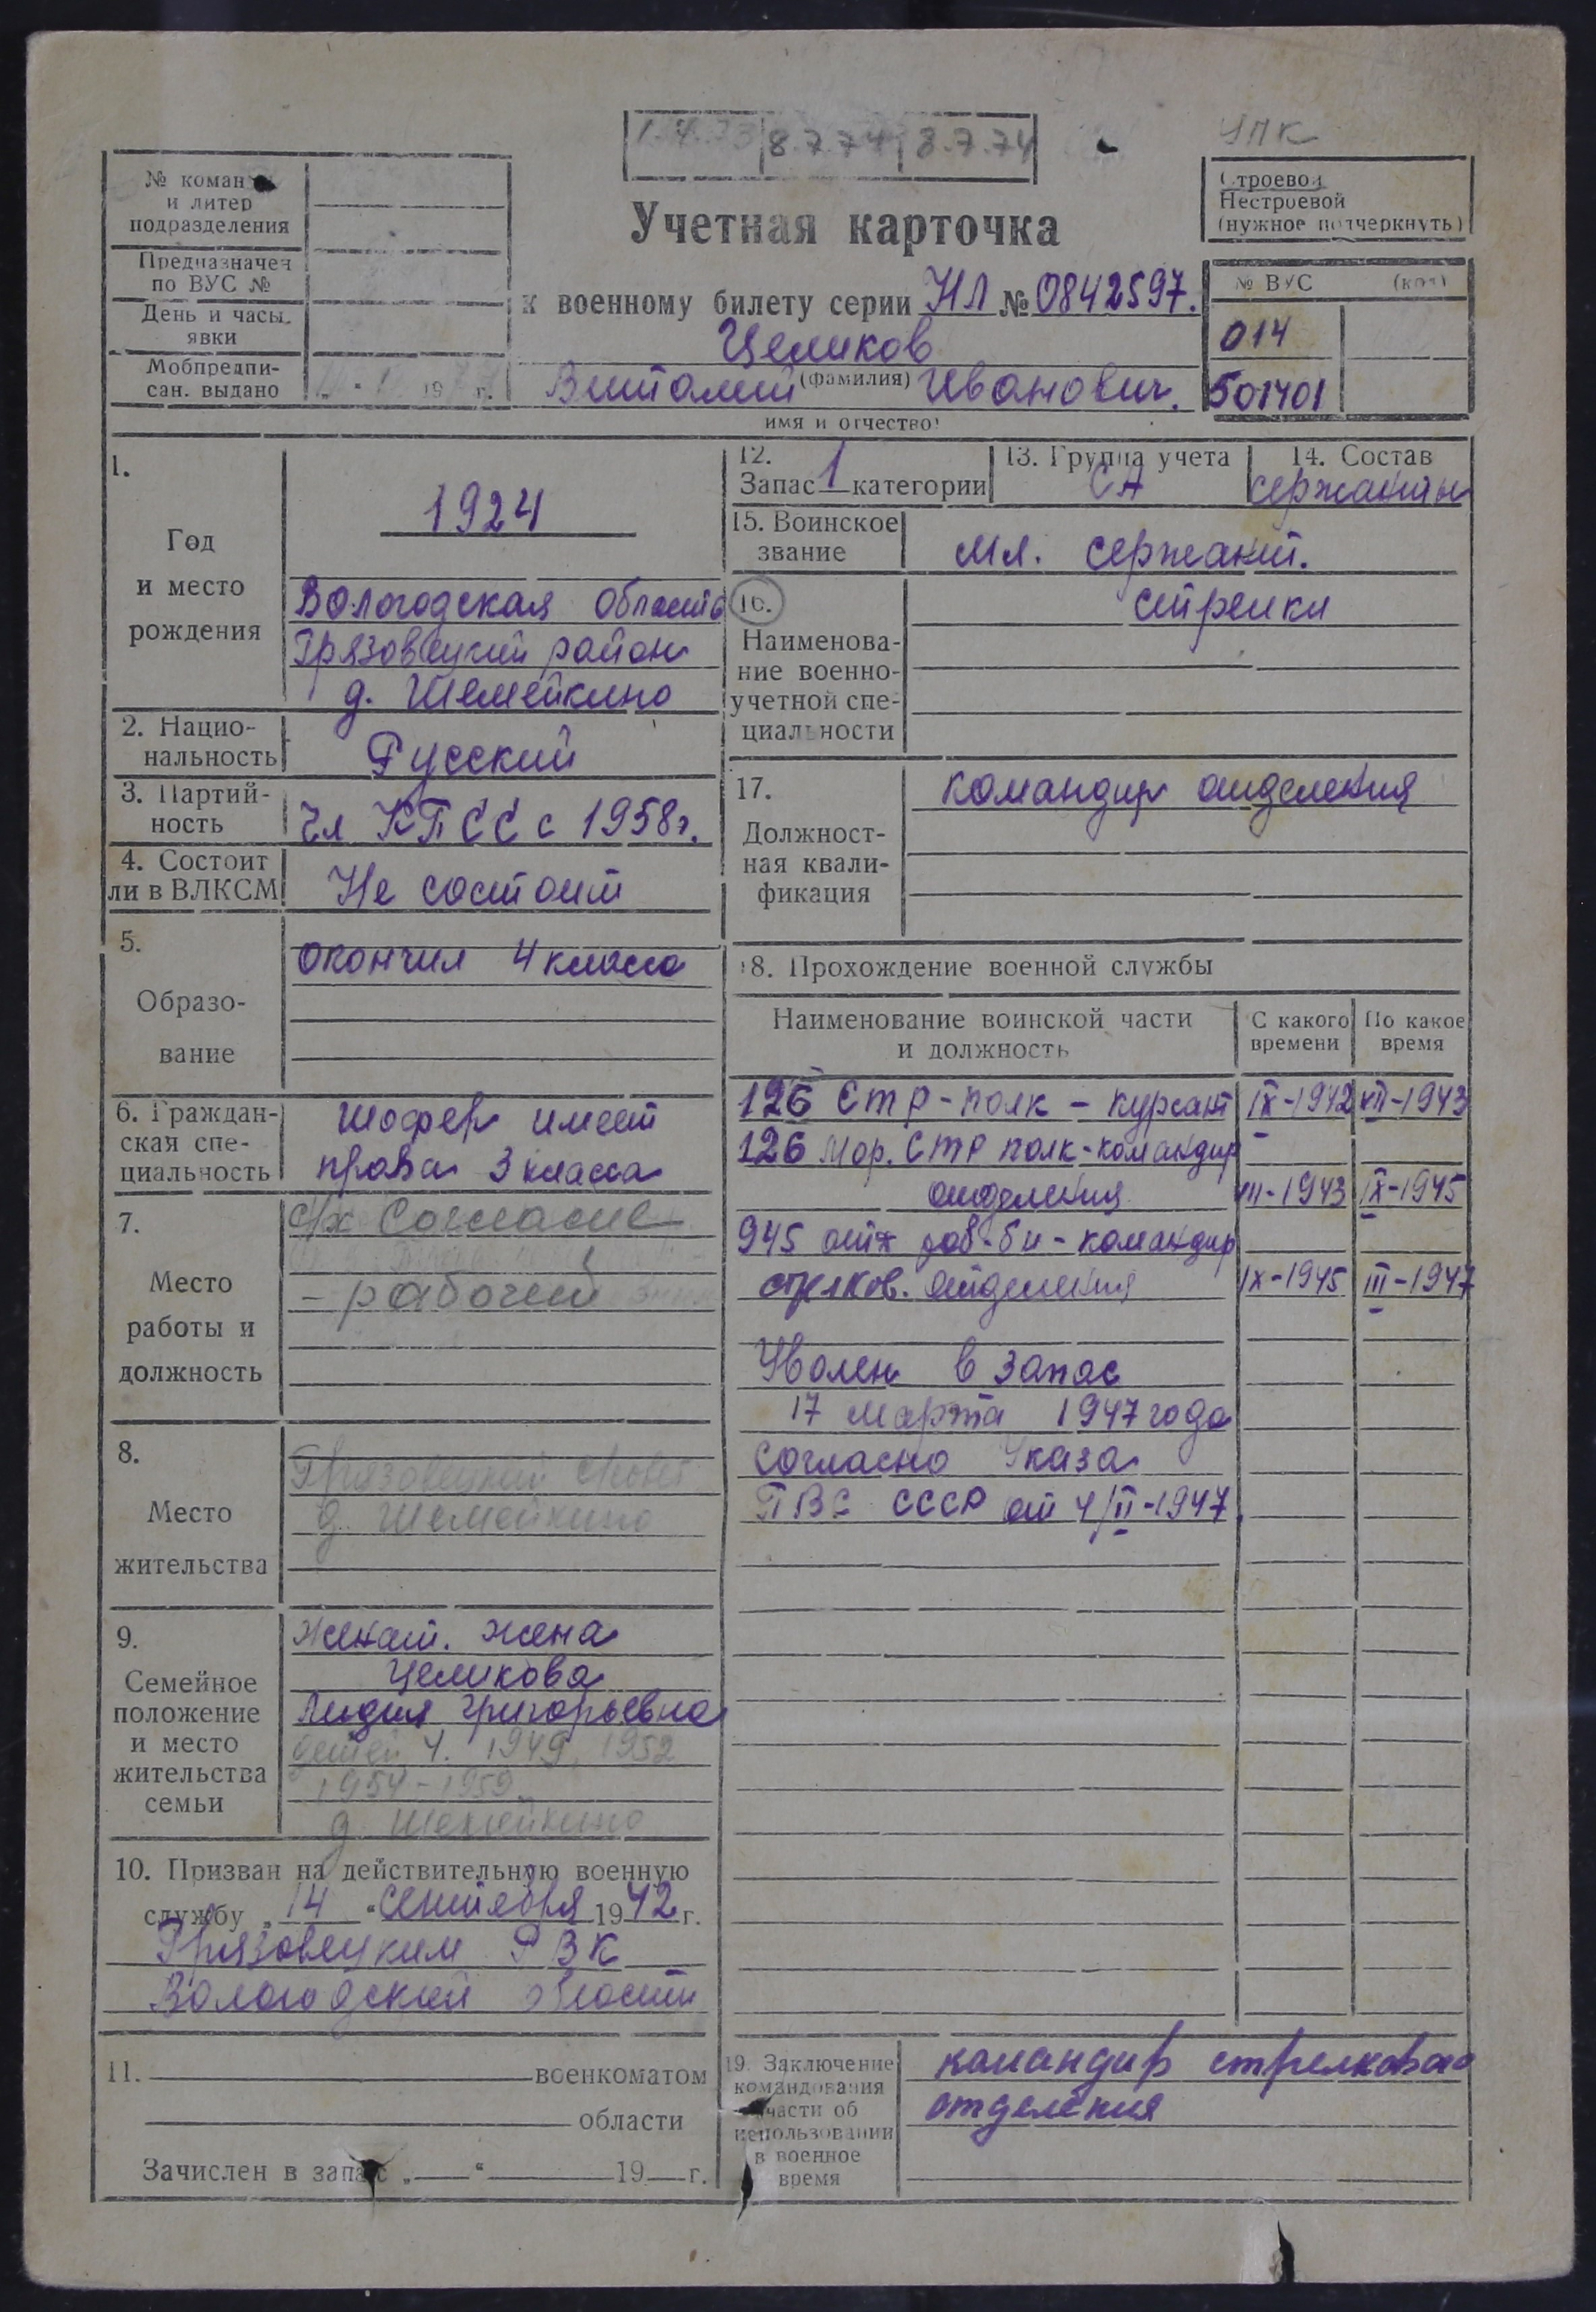 1.4.73 8.7.74 8.7.74
УПК
№ команды
и литер
подразделения
Предназначен
по ВУС №
День и часы
явки
Мобпредпи-
сан. выдано 19 г.
Учетная карточка
к военному билету серии НЛ № 0842597.
Целиков
(фамилия)
Виталий Иванович.
имя и отчество
Строевой
Нестроевой
(нужное подчеркнуть)
№ ВУС (код)
014
501401
1.
Год
и место
рождения
1924
Вологодская область
Грязовецкий район
д. Шемейкино
2. Нацио-
нальность
Русский
3. Партий-
ность
Чл КПСС с 1958г.
4. Состоит
ли в ВЛКСМ
Не состоит
5.
Образо-
вание
окончил 4 класса
6. Граждан-
ская спе-
циальность
шофер имеет
права 3 класса
7.
Место
работы и
должность
с/х Согласие
- рабочий
8.
Место
жительства
Грязовецкий
д. Шемейкино
9.
Семейное
положение
и место
жительства
семьи
Женат. жена
Целикова
Лидия Григорьевна
детей 4. 1949, 1952
1954-1959
д Шемейкино
10. Призван на действительную военную
службу „14“ сентября 1942 г.
Грязовецким РВК
Вологодской области
11. военкоматом
области
Зачислен в запас „ “ 19 г.
12.
Запас 1 категории
13. Группа учета
СА
14. Состав
сержанты
15. Воинское
звание
мл. сержант.
16.
Наименова-
ние военно-
учетной спе-
циальности
стрелки
17.
Должност-
ная квали-
фикация
командир отделения
18. Прохождение военной службы
Наименование воинской части
и должность
С какого
времени
По какое
время
126 Стр-полк - курсант IX-1942 XII-1943
126 Мор. Стр полк-командир
отделения XII-1943 IX-1945
945 отд раб-бн - командир
стрелков. отделения IX-1945 III-1947
Уволен в запас
17 марта 1947 года
согласно Указа
ПВС СССР от 4/II-1947
19. Заключение
командования
части об
использовании
в военное
время
командир стрелкового
отделения